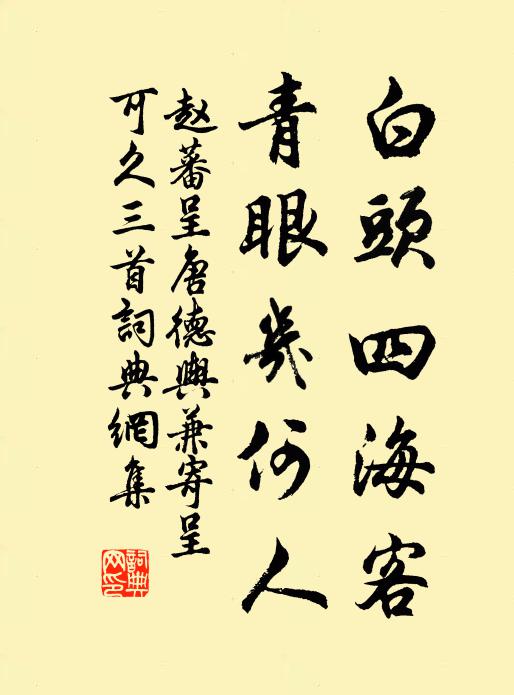 白頭四海客
青眼幾何人
赵蕃呈唐德興兼寄呈
可久三首詞典網集
詞典网印